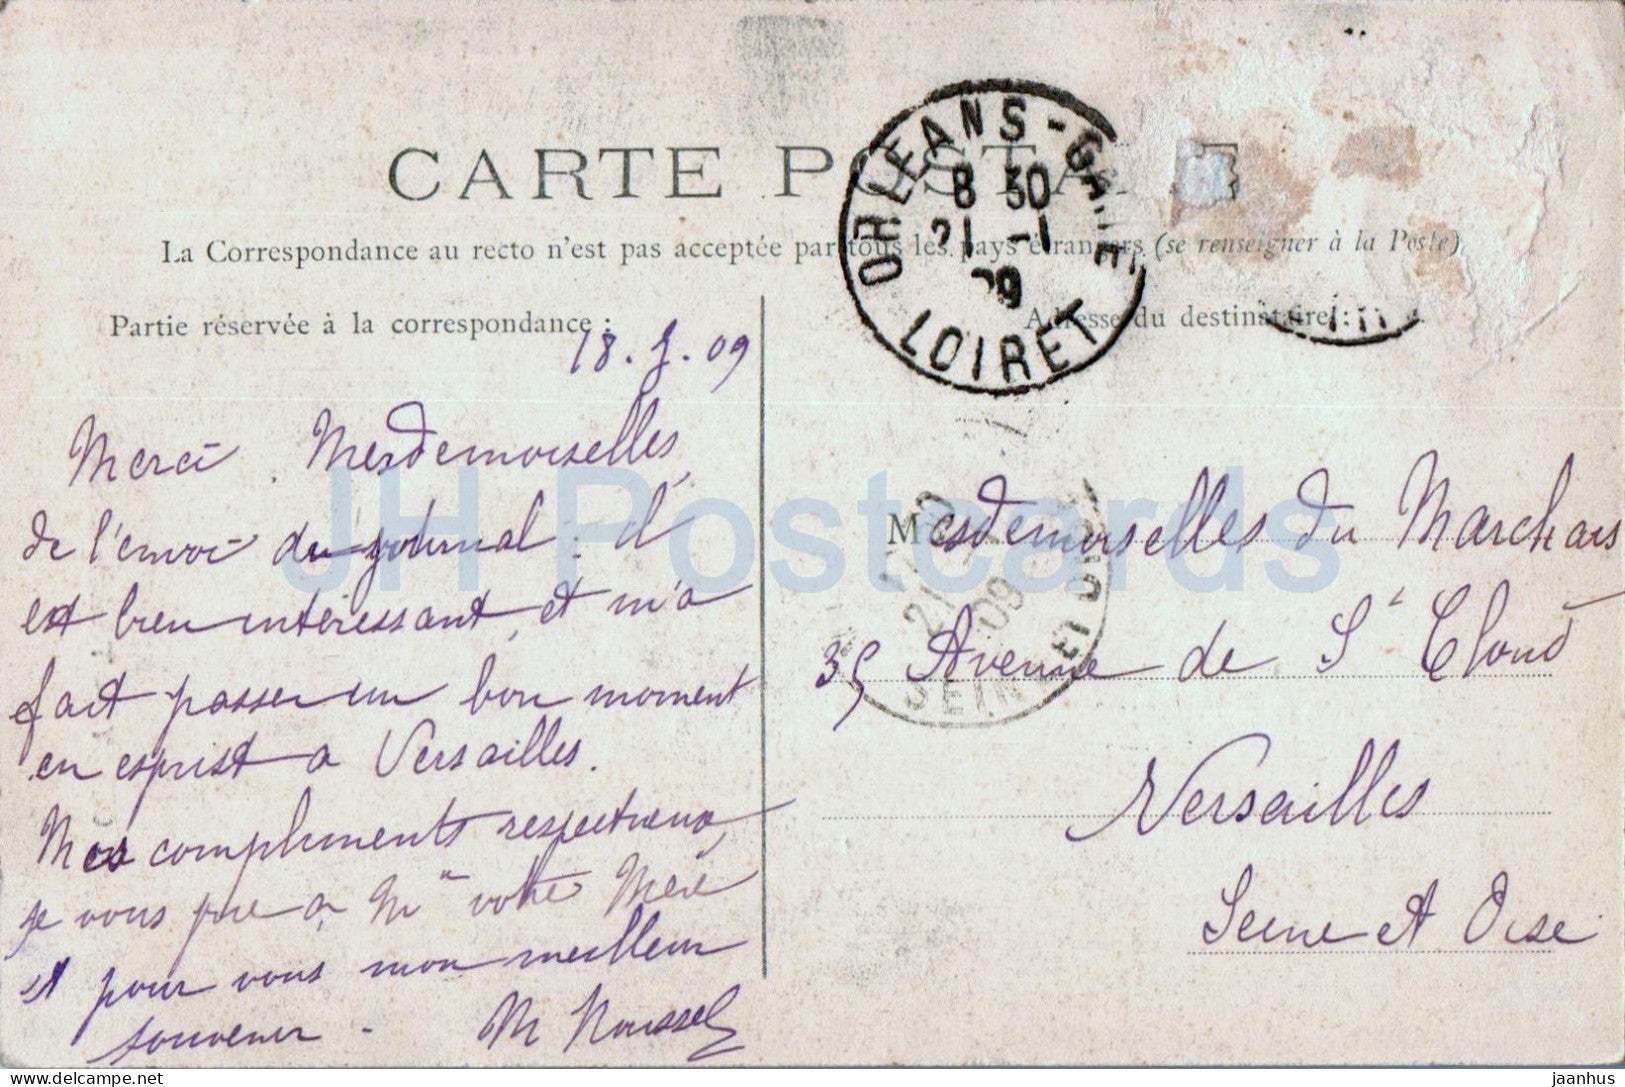 CARTE POSTALE
La Correspondance au recto n'est pas acceptée par tous les pays étrangers (se renseigner à la Poste)
Partie réservée à la correspondance :
Adresse du destinataire :
ORLEANS-GARE
8 30
21 -1
09
LOIRET
18. 1. 09
Merci. Mesdemoiselles,
de l'envoi du journal : il
est bien intéressant, et m'a
fait passer un bon moment
en esprit à Versailles.
Mes compliments respectueux,
je vous prie à Mme votre Mère
et pour vous mon meilleur
souvenir.
M Roussel
Mesdemoiselles du Marchais
35 Avenue de St Cloud
Versailles
Seine et Oise
21
09
SEINE ET OISE
JH Postcards
delcampe.net
jaanhus